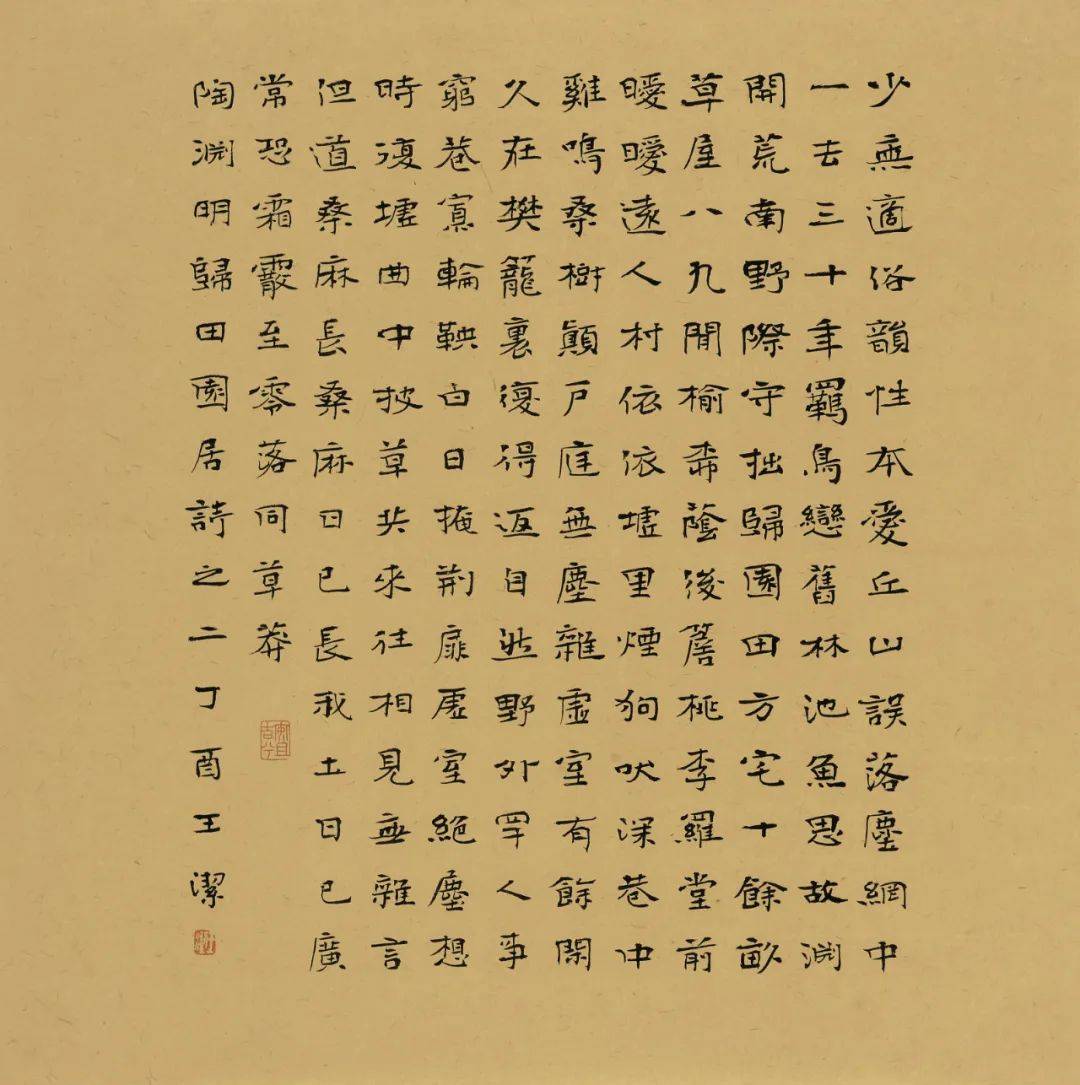 少無適俗韻性本愛丘山誤落塵網中
一去三十年羈鳥戀舊林池魚思故淵
開荒南野際守拙歸園田方宅十餘畝
草屋八九閒榆柳蔭後簷桃李羅堂前
曖曖遠人村依依墟里煙狗吠深巷中
雞鳴桑樹顛戶庭無塵雜虛室有餘閑
久在樊籠裏復得返自然野外罕人事
窮巷寡輪鞅白日掩荊扉虛室絕塵想
時復墟曲中披草共來往相見無雜言
但道桑麻長桑麻日已長我土日已廣
常恐霜霰至零落同草莽
陶淵明歸田園居詩之二丁酉王潔